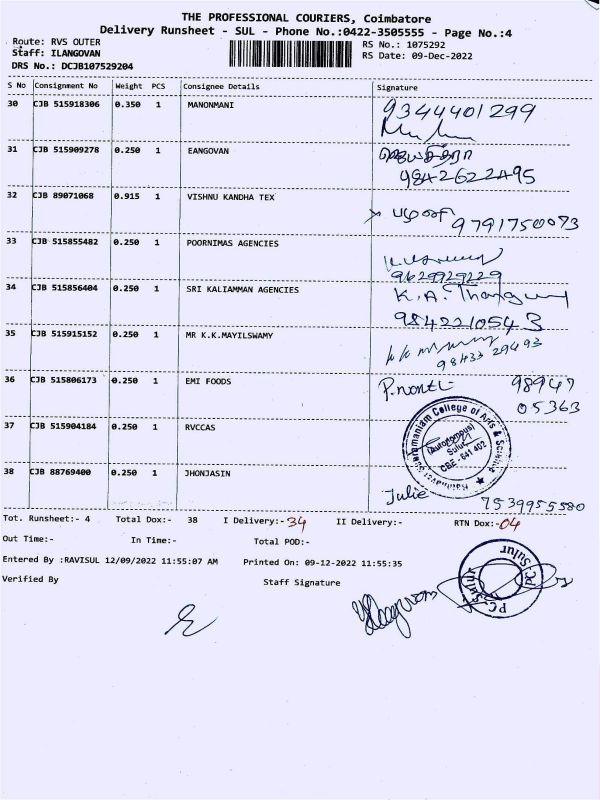 THE PROFESSIONAL COURIERS, Coimbatore
Delivery Runsheet - SUL - Phone No.:0422-3505555 - Page No.:4
Route: RVS OUTER
Staff: ILANGOVAN
DRS No.: DCJB107529204
RS No.: 1075292
RS Date: 09-Dec-2022
S No Consignment No Weight PCS Consignee Details Signature
30 CJB 515918306 0.350 1 MANONMANI 9344401299
31 CJB 515909278 0.250 1 EANGOVAN
9842622495
32 CJB 89071068 0.915 1 VISHNU KANDHA TEX
9791750073
33 CJB 515855482 0.250 1 POORNIMAS AGENCIES
9629929229
34 CJB 515856404 0.250 1 SRI KALIAMMAN AGENCIES K.A.
9842210543
35 CJB 515915152 0.250 1 MR K.K.MAYILSWAMY
98433 29493
36 CJB 515806173 0.250 1 EMI FOODS 98947
05363
37 CJB 515904184 0.250 1 RVCCAS
College of Arts & Science
(Autonomous)
Sulur
CBE - 641 402
38 CJB 88769400 0.250 1 JHONJASIN
Julie 7539955580
Tot. Runsheet:- 4 Total Dox:- 38 I Delivery:-34 II Delivery:- RTN Dox:-04
Out Time:- In Time:- Total POD:-
Entered By :RAVISUL 12/09/2022 11:55:07 AM Printed On: 09-12-2022 11:55:35
Verified By Staff Signature
PC Sulur